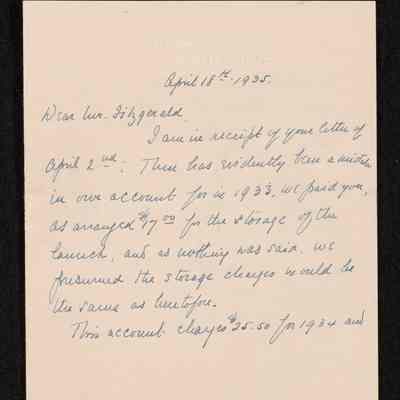 April 18th 1935.
Dear Mr. Fitzgerald.
I am in receipt of your letter of
April 2nd. There has evidently been a mistake
in our account for in 1933, we paid you,
as arranged $17.00 for the storage of the
launch, and as nothing was said, we
presumed the storage charges would be
the same as heretofore.
This account charges $25.50 for 1934 and